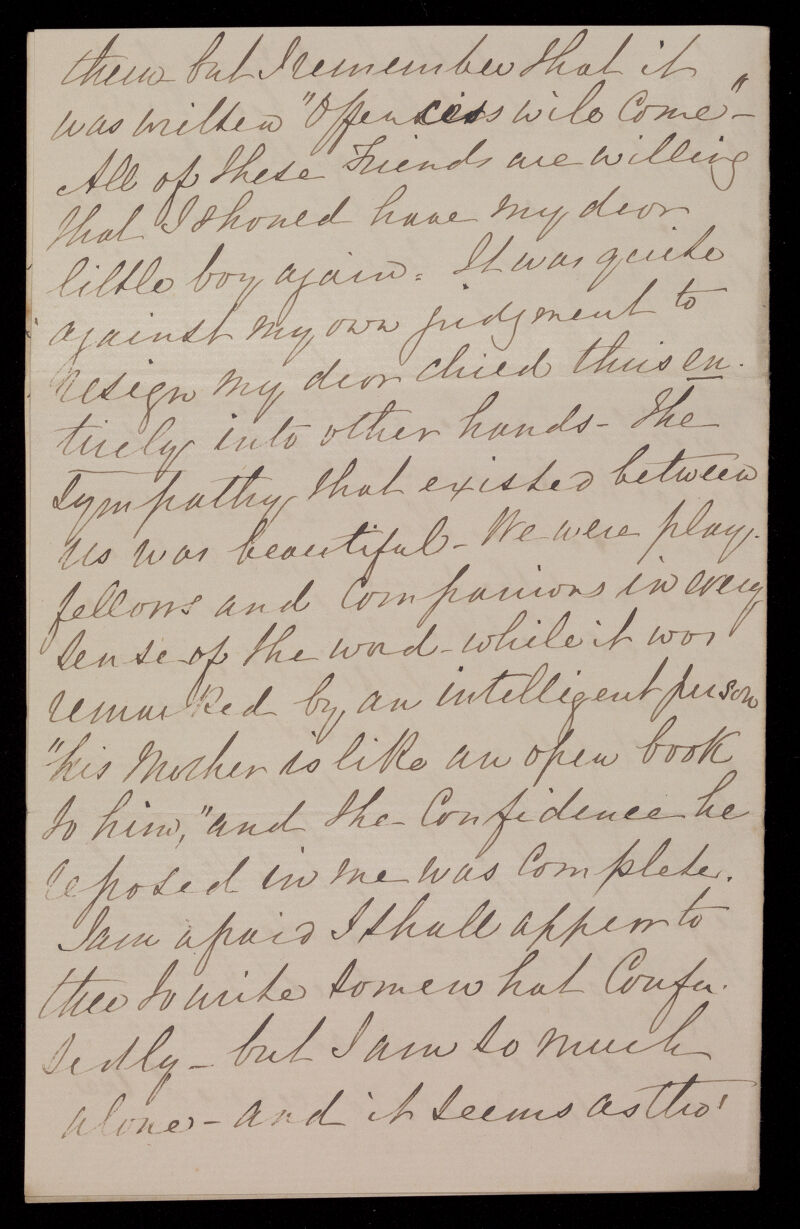 them but I remember that it
was written "Offences will Come"-
All of these Friends are willing
that I should have my dear
little boy again. It was quite
against my own judgment to
resign my dear child thus en-
tirely into other hands - The
sympathy that existed between
us was beautiful - We were play-
fellows and Companions in every
sense of the word - while it was
remarked by an intelligent person
"his Mother is like an open book
to him," and the Confidence he
reposed in me was Complete.
I am afraid I shall appear to
thee to write somewhat Confu-
sedly - but I am so much
alone - and it seems as tho'